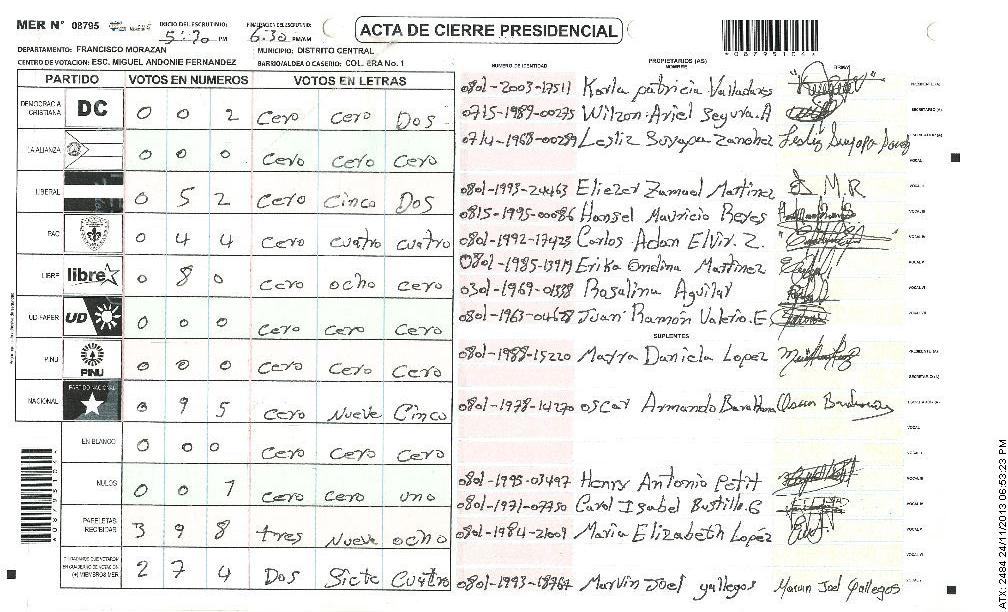 MER N° 08795 INICIO DEL ESCRUTINIO: 5:30 PM FINALIZACION DEL ESCRUTINIO: 6:30 PM/AM
ACTA DE CIERRE PRESIDENCIAL
* 0 8 7 9 5 1 0 4 *
DEPARTAMENTO: FRANCISCO MORAZAN MUNICIPIO: DISTRITO CENTRAL
CENTRO DE VOTACION: ESC. MIGUEL ANDONIE FERNANDEZ BARRIO/ALDEA O CASERIO: COL. ERA No. 1
PARTIDO VOTOS EN NUMEROS VOTOS EN LETRAS
DEMOCRACIA CRISTIANA DC 0 0 2 Cero Cero Dos
LA ALIANZA 0 0 0 Cero Cero Cero
LIBERAL 0 5 2 Cero Cinco Dos
PAC 0 4 4 Cero cuatro cuatro
LIBRE libre 0 8 0 Cero ocho cero
UD-FAPER UD 0 0 0 Cero Cero Cero
PINU PINU 0 0 0 Cero Cero Cero
NACIONAL PARTIDO NACIONAL 0 9 5 Cero Nueve Cinco
EN BLANCO 0 0 0 Cero Cero Cero
NULOS 0 0 1 Cero Cero uno
PAPELETAS RECIBIDAS 3 9 8 tres Nueve ocho
CIUDADANOS QUE VOTARON EN CUADERNO DE VOTACION (+) MIEMBROS MER 2 7 4 Dos Siete Cuatro
NUMERO DE IDENTIDAD PROPIETARIOS (AS) NOMBRES FIRMA
0801-2003-17511 Karla patricia Valladares PRESIDENTE (A)
0715-1989-00275 Wilzon Ariel Segura.A SECRETARIO (A)
0714-1968-00259 Lesliz Suyapa Sanchez
VOCAL I
0801-1993-24463 Eliezer Zamuel Martinez M.R
0815-1995-00086 Hansel Mauricio Reyes
0801-1992-17423 Carlos Adan Elvir. Z.
0801-1985-13919 Erika Ondina Martinez
0301-1969-01338 Rosalina Aguilar
0801-1963-04678 Juan Ramón Valerio.E
SUPLENTES
0801-1988-15220 Mayra Daniela Lopez PRESIDENTE (A)
SECRETARIO (A)
0801-1978-14270 oscar Armando Barahona
VOCAL I
0801-1995-03497 Henry Antonio Petit
0801-1971-07750 Carol Isabel Bustillo.G
0801-1984-21009 Maria Elizabeth Lopéz
0801-1993-18767 Marvin Joel gallegos Marvin Joel Gallegos
ATX-2484 24/11/2013 06:53:23 PM